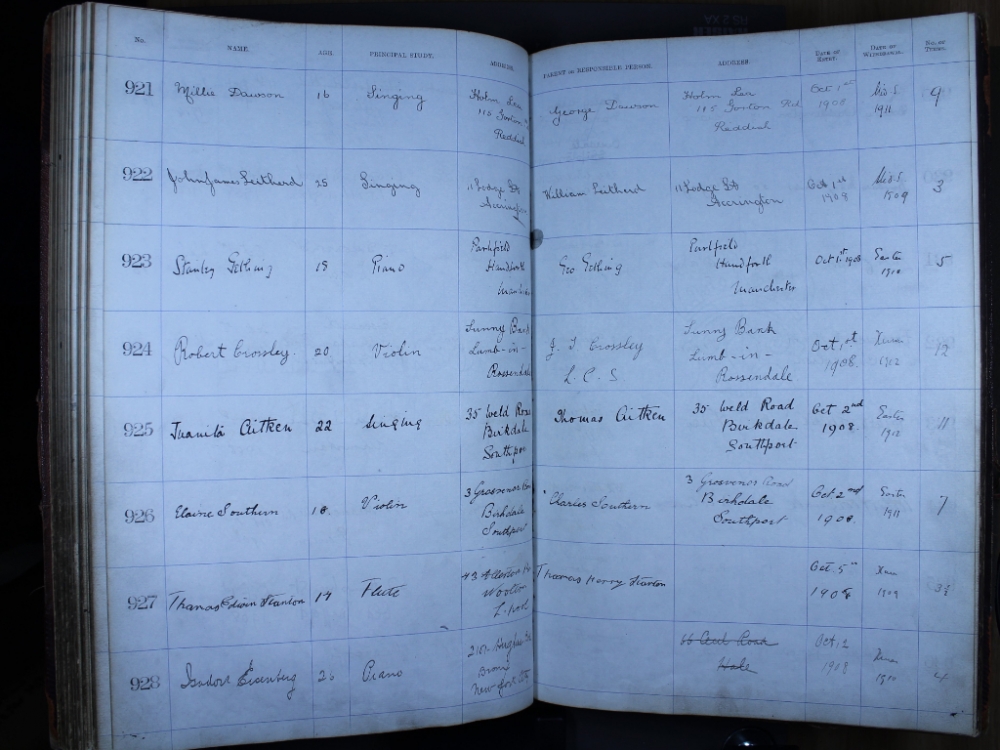 No. NAME. AGE. PRINCIPAL STUDY. ADDRESS. PARENT OR RESPONSIBLE PERSON. ADDRESS. DATE OF ENTRY. DATE OF WITHDRAWAL. NO. OF TERMS.
921 Millie Dawson 16 Singing Holm Lea George Dawson Holm Lea Oct 1st Mids 9
115 Gorton 115 Gorton Rd 1908 1911
Reddish Reddish
922 John James Leitherd 25 Singing 11 Lodge St William Leitherd 11 Lodge St Oct 1st Mids 3
Accrington Accrington 1908 1909
923 Stanley Gething Piano Parkfield Geo Gething Parkfield Oct 1st 1908 Easter 5
Handforth Handforth 1910
Manchester
924 Robert Crossley. 20 Violin Sunny Bank J. T Crossley Sunny Bank Oct 1st Xmas 12
Lumb-in- L. C. S. Lumb-in- 1908. 1912
Rossendale Rossendale
925 Juanita Aitken 22 Singing 35 Weld Road Thomas Aitken 35 Weld Road Oct 2nd Easter 11
Birkdale Birkdale 1908. 1912
Southport Southport
926 Elaine Southern 18 Violin 3 Grosvenor Road Charles Southern 3 Grosvenor Road Oct 2nd Easter 7
Birkdale Birkdale 1908. 1911
Southport Southport
927 Thomas Edwin Stanton 14 Flute 43 Allerton Rd Thomas Harry Stanton Oct. 5th Xmas
Woolton 1908 1909
L.pool
928 Isidor Eisenberg Piano Hughes Oct. 2 Xmas 4
Bronx Hale 1908 1910
New York City